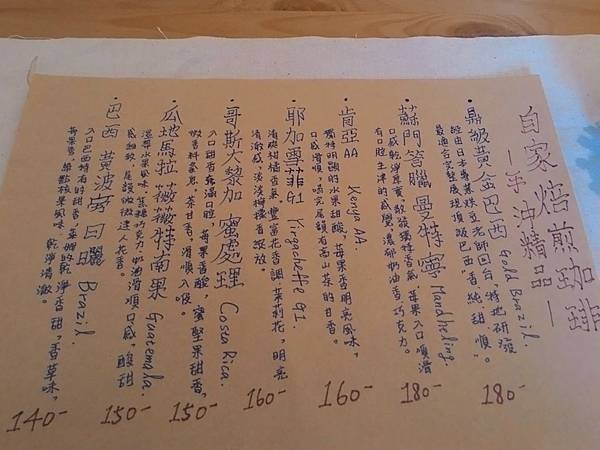 自家焙煎咖啡
—手沖精品—
・鼎級黃金巴西 Gold Brazil.
經由日本專業烘豆老師回台,特地研發
最適合李整展現頂級巴西"香、純、甜、順"。
180-
・蘇門答臘曼特寧 Mandheling.
口感乾淨厚實,散發獨特香氣,莓果入口順滑
有口腔生津的感覺,濃郁奶油香巧克力。
180-
・肯亞AA Kenya AA.
獨特明顯的水果甜酸,莓果香明亮風味,
口感滑順,喝完尾韻有高山茶的甘香。
160-
・耶加雪菲G1 Yirgacheffe G1.
清爽甜橘香氣,豐富花香調,茉莉花,明亮
清澈感,淡淡檸檬香綻放。
160-
・哥斯大黎加 蜜處理 Costa Rica.
入口甜香充滿口腔,莓果香酸,蜜堅果甜香,
微香料氣息,茶甘香,滑順入喉。
150-
・瓜地馬拉 薇薇特南果 Guatemala.
溫帶水果風味,焦糖巧克力,奶油滑順口感,酸甜
感細緻,尾韻微微迷人花香。
150-
・巴西 黃波旁日曬 Brazil.
入口巴西特有的甜香,蒸餾的乾淨香甜,"香草味",
莓果香,些點核果風味,乾淨清澈。
140-